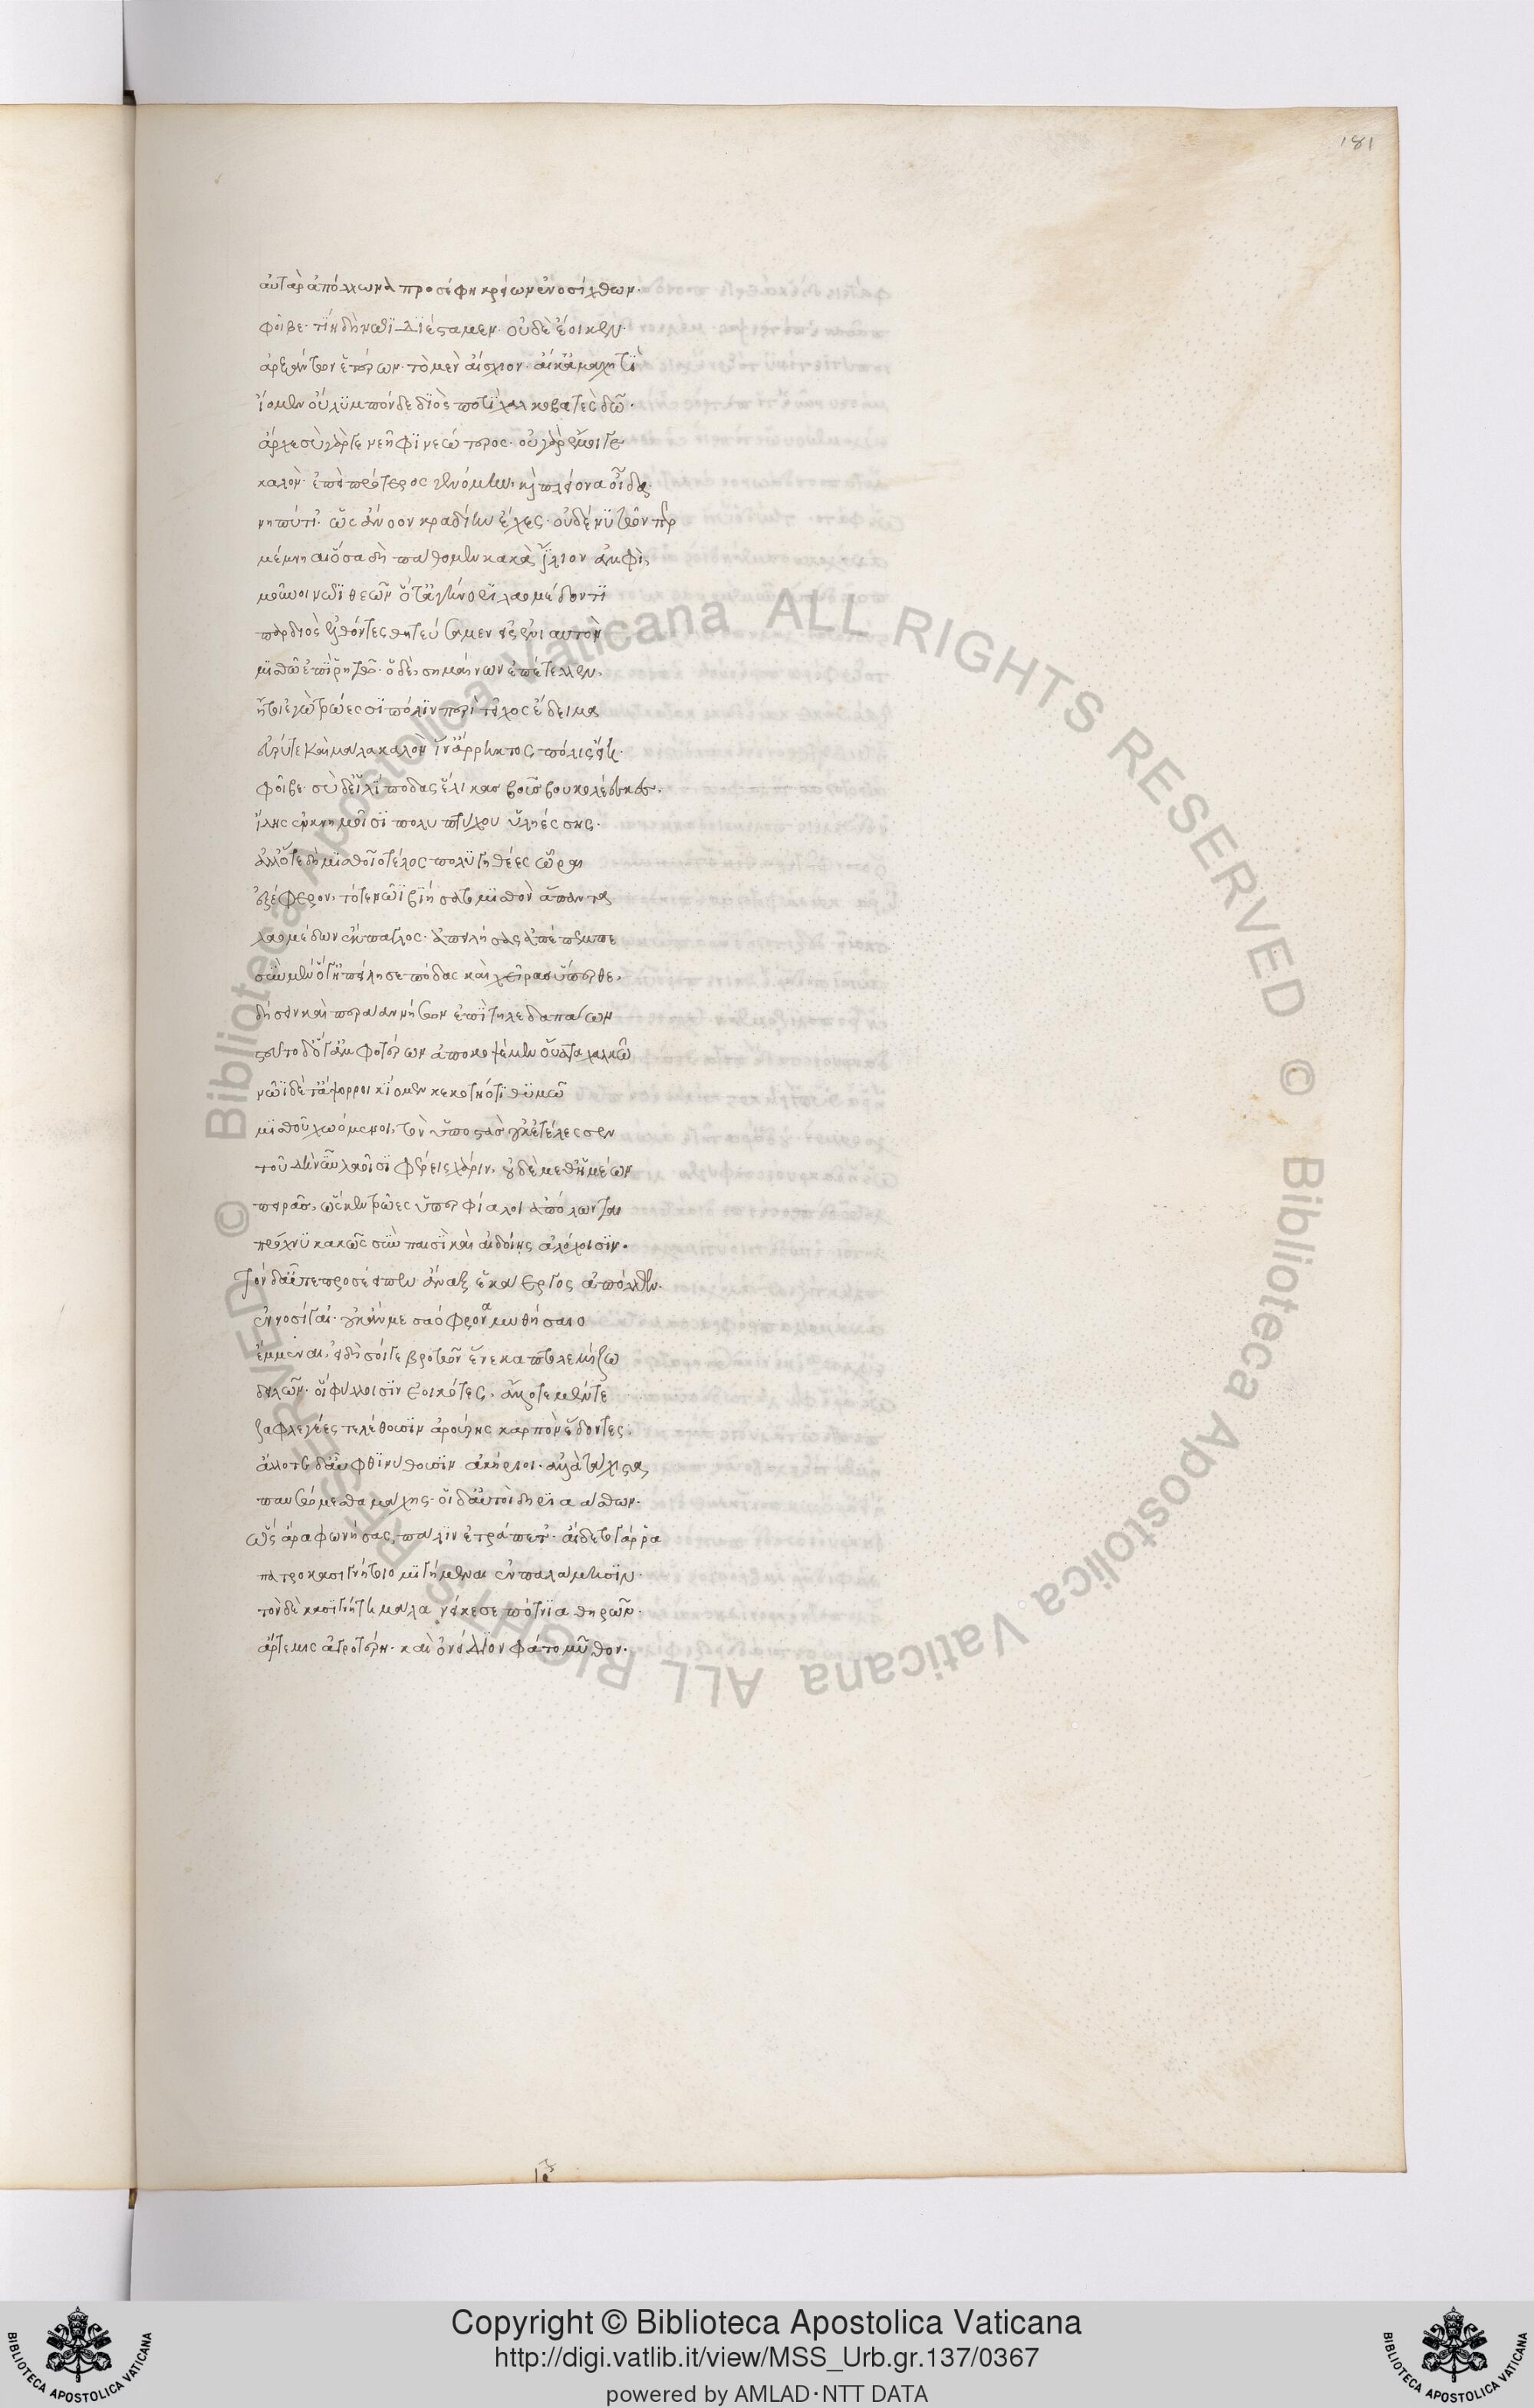 181
αὐτὰρ ἀπόλλωνα προσέφη κρείων ἐνοσίχθων·
φοῖβε· τίη δὴ νῶϊ διέσταμεν· οὐδὲ ἔοικεν·
ἀρξάντων ἑτέρων· τὸ μὲν αἴσχιον· αἴκ' ἀμαχητὶ
ἴομεν οὔλυμπόνδε διὸς ποτὶ χαλκοβατὲς δῶ·
ἄρχε σὺ γάρ γενεῆφι νεώτερος· οὐ γὰρ ἔμοιγε
καλὸν· ἐπεὶ πρότερος γενόμην, καὶ πλείονα οἶδα·
νηπύτι'· ὡς ἄνοον κραδίην ἔχες· οὐδέ νυ τῶν περ
μέμνηαι ὅσα δὴ πάθομεν κακὰ ἴλιον ἀμφὶς
μοῦνοι νῶϊ θεῶν ὅτ' ἀγήνορι λαομέδοντι
πὰρ διὸς ἐλθόντες θητεύσαμεν εἰς ἐνιαυτὸν
μισθῶ ἐπὶ ῥητῶ· ὁ δὲ σημαίνων ἐπέτελλεν·
ἤτοι ἐγὼ τρώεσσι πόλιν πέρι τεῖχος ἔδειμα
εὐρύ τε καὶ μάλα καλὸν ἵν' ἄρρηκτος πόλις εἴη·
φοῖβε· σὺ δ' εἰλίποδας ἕλικας βοῦς βουκολέεσκες·
ἴδης ἐν κνημοῖσι πολυπτύχου ὑληέσσης·
ἀλλ' ὅτε δὴ μισθοῖο τέλος πολυγηθέες ὧραι
ἐξέφερον, τότε νῶϊ βιήσατο μισθὸν ἅπαντα
λαομέδων ἔκπαγλος· ἀπειλήσας ἀπέπεμπε
σὺν μὲν ὅ γ' ἠπείλησε πόδας καὶ χεῖρας ὕπερθε,
δήσειν καὶ περάαν νήσων ἐπὶ τηλεδαπάων
στεῦτο δ' ὅ γ' ἀμφοτέρων ἀποκοψέμεν οὔατα χαλκῶ
νῶϊ δέ τ' ἄψορροι κίομεν κεκοτηότι θυμῶ
μισθοῦ χωόμενοι, τὸν ὑποστὰς οὐκ ἐτέλεσσεν
τοῦ δὴ νῦν λαοῖσι φέρεις χάριν, οὐδὲ μεθ' ἡμέων
πειρᾶς, ὥς κεν τρῶες ὑπερφίαλοι ἀπόλωνται
πρόχνυ κακῶς σὺν παισὶ καὶ αἰδοίης ἀλόχοισιν·
Τὸν δ' αὖτε προσέειπεν ἄναξ ἑκάεργος ἀπόλλων·
ἐννοσίγαι'· οὐκ ἄν με σαόφρονα μυθήσαιο
ἔμμεναι, εἰ δὴ σοίγε βροτῶν ἕνεκα πτολεμίξω
δειλῶν· οἳ φύλλοισιν ἐοικότες, ἄλλοτε μέν τε
ζαφλεγέες τελέθουσιν ἀρούρης καρπὸν ἔδοντες·
ἄλλοτε δ' αὖ φθινύθουσιν ἀκήριοι· ἀλλὰ τάχιστα
παυσώμεθα μάχης· οἱ δ' αὐτοὶ δηριαάσθων·
ὣς ἄρα φωνήσας, πάλιν ἐτράπετ'· αἴδετο γάρ ῥα
πατροκασιγνήτοιο μιγήμεναι ἐν παλάμῃσιν·
τὸν δὲ κασιγνήτη μάλα νείκεσε πότνια θηρῶν·
ἄρτεμις ἀγροτέρη· καὶ ὀνείδιον φάτο μῦθον·
Copyright © Biblioteca Apostolica Vaticana
http://digi.vatlib.it/view/MSS_Urb.gr.137/0367
powered by AMLAD·NTT DATA
BIBLIOTECA APOSTOLICA VATICANA
BIBLIOTECA APOSTOLICA VATICANA
© Biblioteca Apostolica Vaticana ALL RIGHTS RESERVED © Biblioteca Apostolica Vaticana ALL RIGHTS RESERVED